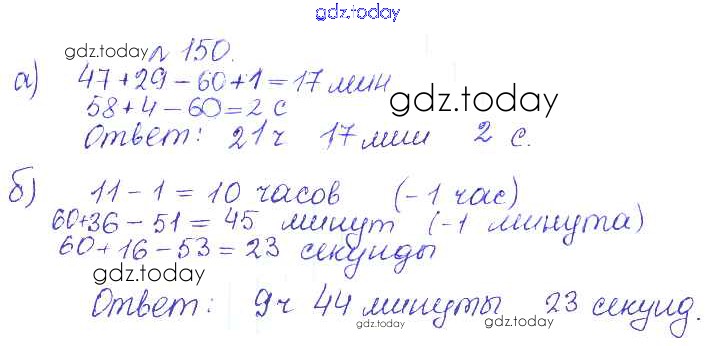 gdz.today
gdz.today № 150.
а) 47+29-60+1=17 мин
58+4-60=2 с gdz.today
Ответ: 21 ч 17 мин 2 с.
б) 11-1=10 часов (-1 час)
60+36-51=45 минут (-1 минута)
60+16-53=23 секунды
gdz.today
Ответ: 9 ч 44 минуты 23 секунд.
gdz.today gdz.today